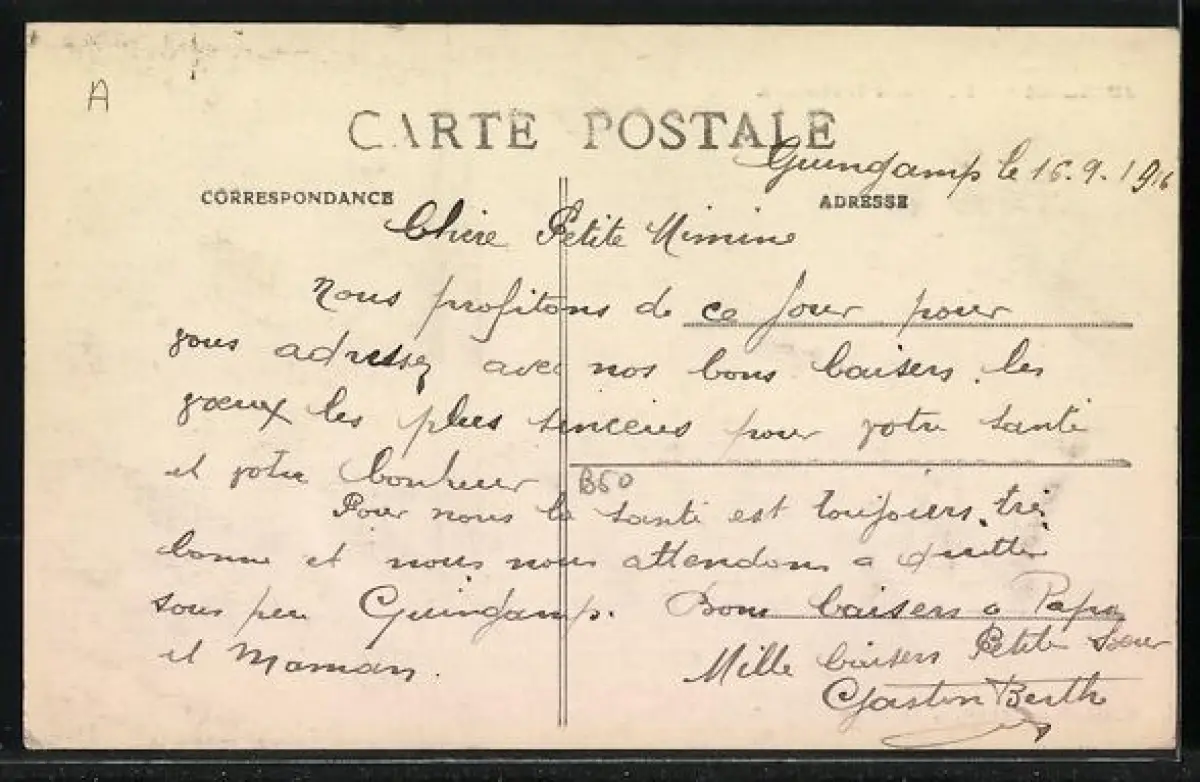 A
CARTE POSTALE
Guingamp le 16.9.1916
CORRESPONDANCE
ADRESSE
Chère Petite Mimine
Nous profitons de ce jour pour
vous adressez avec nos bons baisers les
vœux les plus sincères pour votre santé
et votre bonheur
B50
Pour nous la santé est toujours très
bonne et nous nous attendons a quitter
sous peu Guingamp. Bons baisers a Papa
et Maman.
Mille baisers Petite Sœur
Gaston Berthe